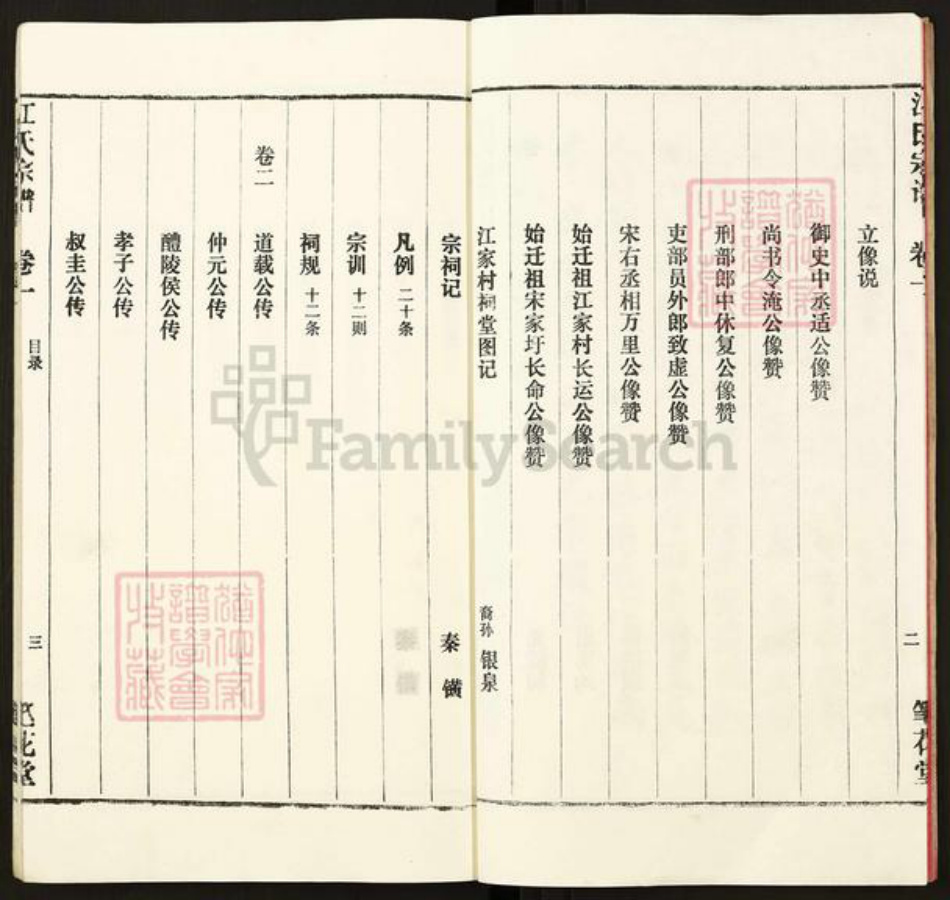 江氏宗谱 卷一 二 笔花堂
立像说
御史中丞适公像赞
尚书令淹公像赞
刑部郎中休复公像赞
吏部员外郎致虚公像赞
宋右丞相万里公像赞
始迁祖江家村长运公像赞
始迁祖宋家圩长命公像赞
江家村祠堂图记 裔孙 银泉
宗祠记 秦镤
凡例 二十条
宗训 十二则
祠规 十二条
卷二 道载公传
仲元公传
醴陵侯公传
孝子公传
叔圭公传
江氏宗谱 卷一 目录 三 笔花堂
FamilySearch